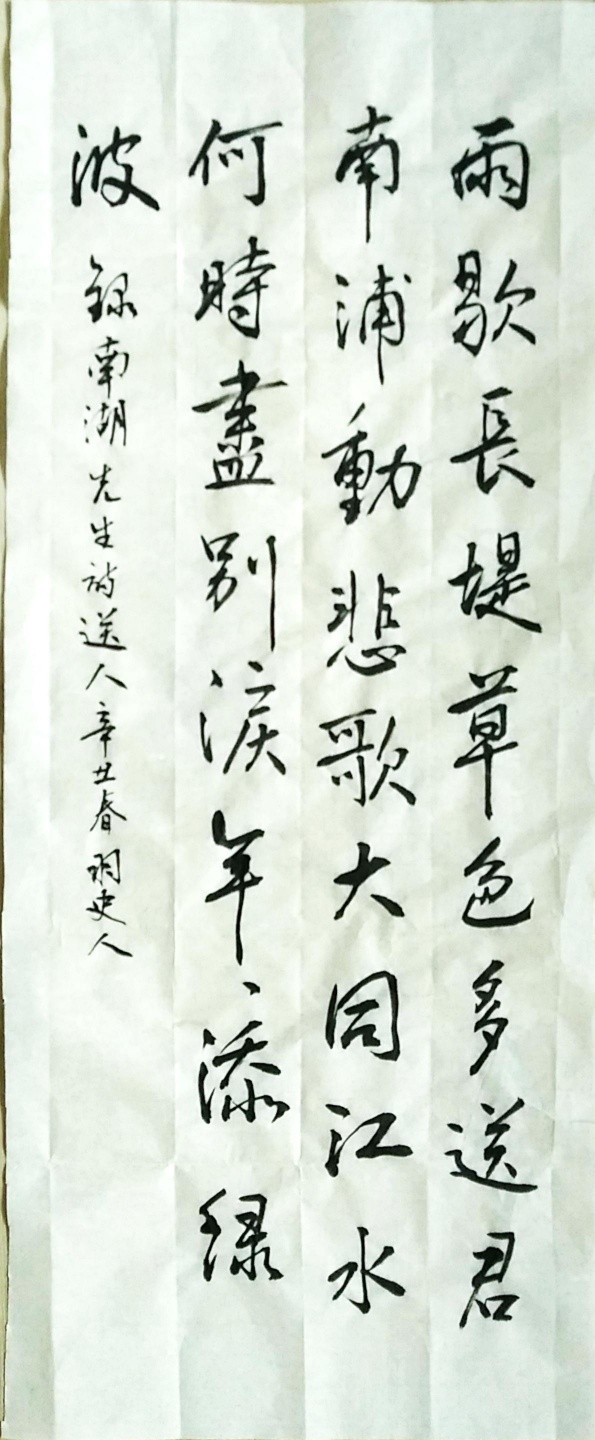 雨歇長堤草色多送君
南浦動悲歌大同江水
何時盡別淚年々添綠
波
錄南湖先生詩送人辛丑春羽史人